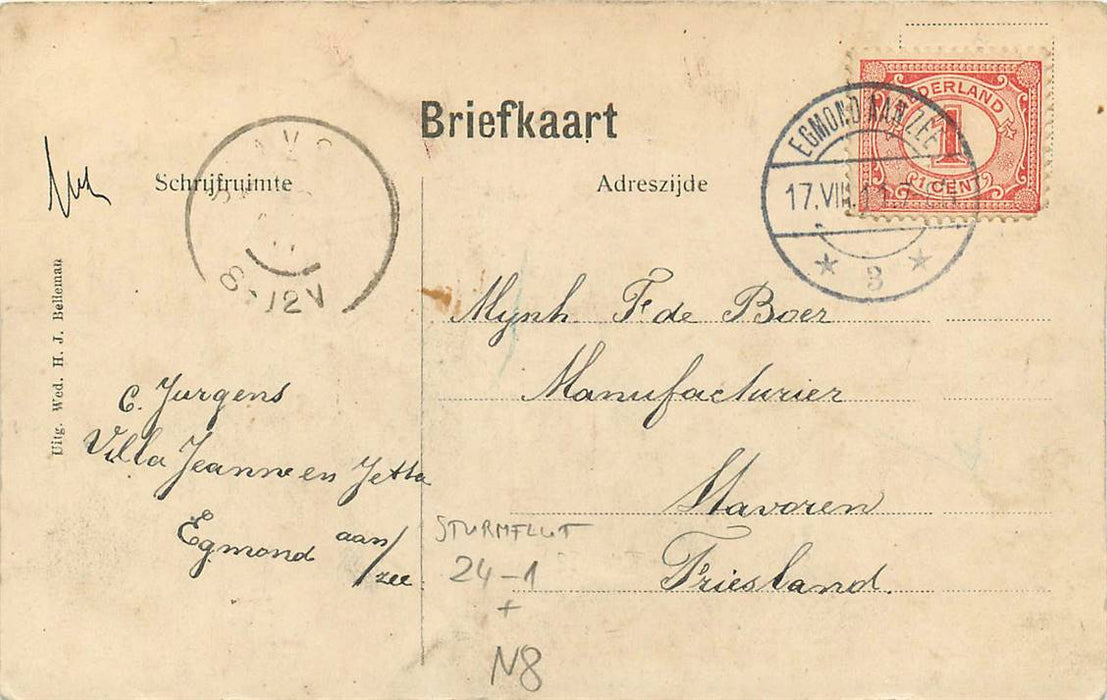 Briefkaart
Schrijfruimte
Adreszijde
NEDERLAND
1
1 CENT
EGMOND AAN ZEE
17.VIII.11.7
3
8-12V
Uitg. Wed. H. J. Belleman
Mynh F. de Boer
Manufacturier
Stavoren
Friesland.
C. Jurgens
Villa Jeanne en Jetta
Egmond aan/zee.
STURMFLUT
24-1
+
N8